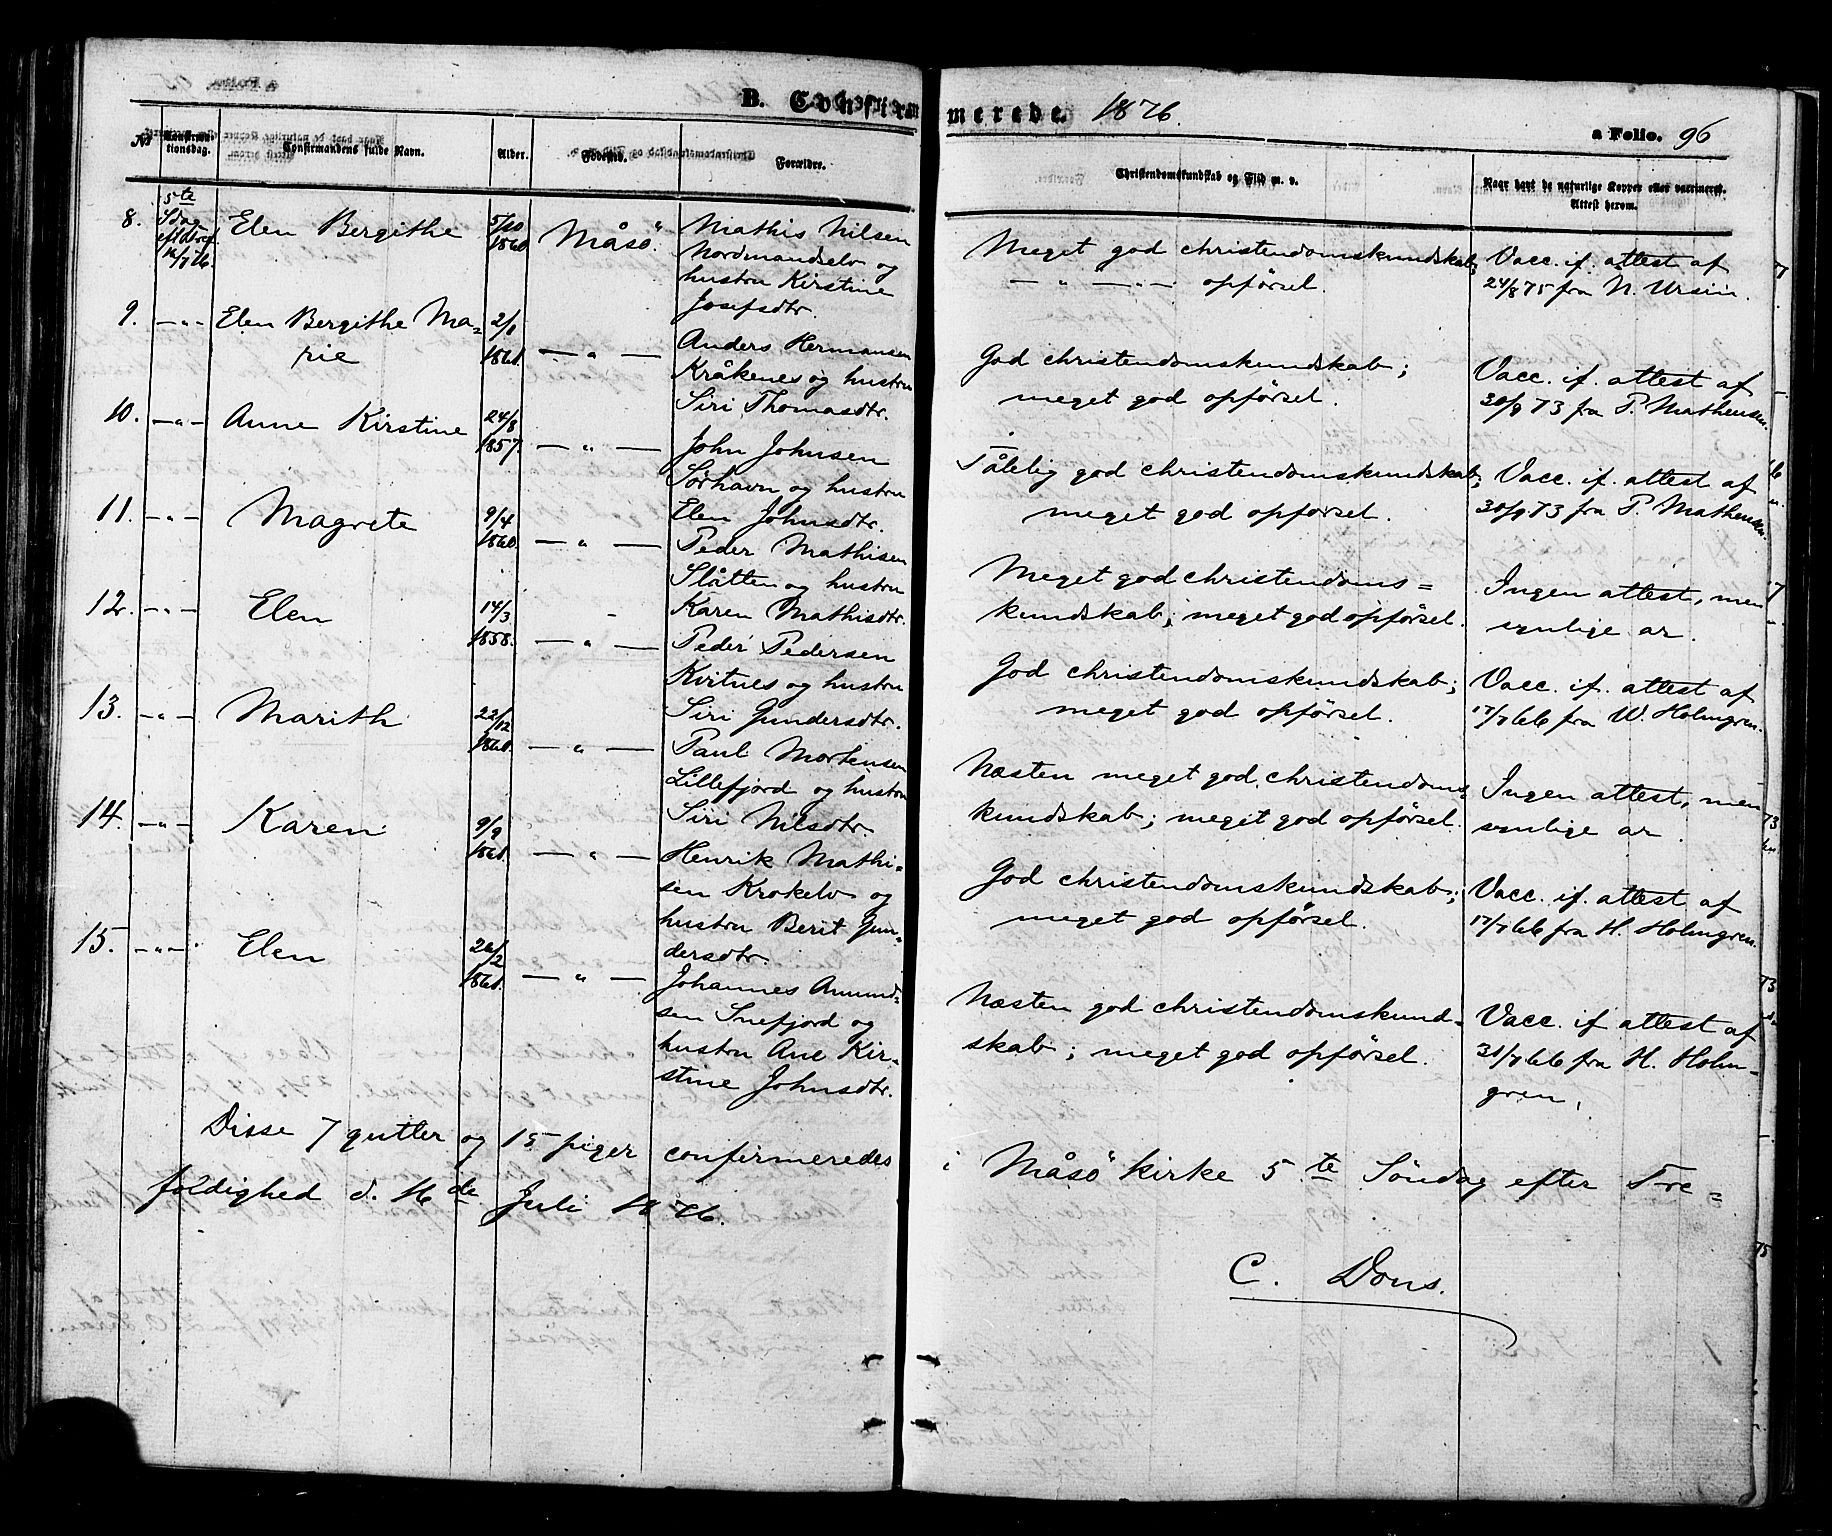 B. Confirmerede. 1876.
a Folio. 96
No
Konfirmationsdag.
Confirmandens fulde Navn.
Alder.
Fødested.
Forældre.
Christendomskundskab og Flid m. v.
Naar havt de naturlige Kopper eller vaccineret.
Attest herom.
8. 5te Sdag eft. Elen Bergithe 5/10 1860 Måsö.
Mathis Nilsen
Nordmandselv og
hustru Kirstine
Josefsdtr.
Meget god christendomskundskab;
— „ — „ — opførsel.
Vacc. if. attest af
24/8 75 fra N. Ursin.
9. — „ — Elen Bergithe Ma=
rie
2/1 1861. — „ —
Anders Hermansen
Kråkenes og hustru
Siri Thomasdtr.
God christendomskundskab;
meget god opførsel.
Vacc. if. attest af
30/9 73 fra P. Mathensen.
10. — „ — Anne Kirstine 24/8 1857. — „ —
John Johnsen
Sørhavn og hustru
Elen Johnsdtr.
Tålelig god christendomskundskab;
meget god opførsel.
Vacc. if. attest af
30/9 73 fra P. Mathensen.
11. — „ — Magrete 9/4 1860. — „ —
Peder Mathisen
Slåtten og hustru
Karen Mathisdtr.
Meget god christendoms=
kundskab; meget god opførsel.
Ingen attest, men
synlige ar.
12. — „ — Elen 14/3 1858. — „ —
Peder Pedersen
Kvitnes og hustru
Siri Gundersdtr.
God christendomskundskab;
meget god opførsel.
Vacc. if. attest af
17/7 66 fra W. Holmgren.
13. — „ — Marith 22/12 1860. — „ —
Paul Mortensen
Lillefjord og hustru
Siri Nilsdtr.
Næsten meget god christendoms=
kundskab; meget god opførsel.
Ingen attest, men
synlige ar.
14. — „ — Karen 9/9 1861. — „ —
Henrik Mathi=
sen Krokelv og
hustru Berit Gun=
dersdtr.
God christendomskundskab;
meget god opførsel.
Vacc. if. attest af
17/7 66 fra H. Holmgren.
15. — „ — Elen 26/2 1861. — „ —
Johannes Amund=
sen Snefjord og
hustru Ane Kir=
stine Johnsdtr.
Næsten god christendomskund=
skab; meget god opførsel.
Vacc. if attest af
31/7 66 fra H. Holm=
gren.
Disse 7 gutter og 15 piger confirmeredes i Måsö kirke 5te Söndag efter Tre=
foldighed d. 16de Juli 1876.
C. Dons.